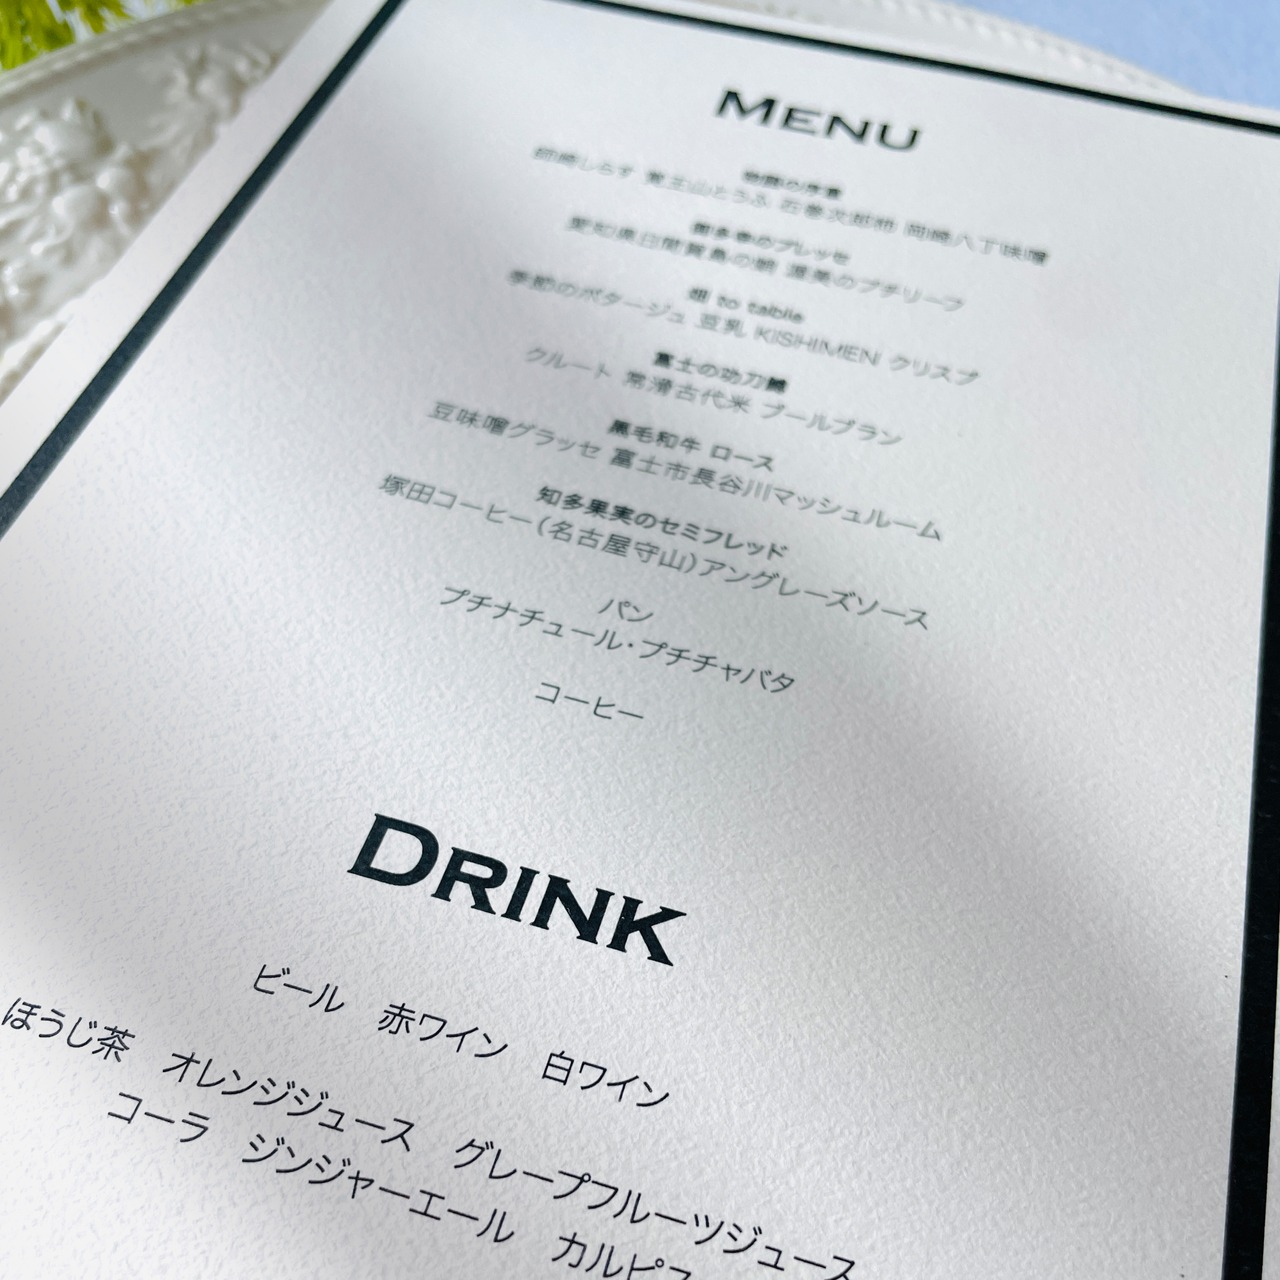 MENU
師崎しらす 覚王山とうふ 石巻次郎柿 岡崎八丁味噌
知多牛のブレッセ
愛知県日間賀島の蛸 渥美のプチリーフ
畑 to table
季節のポタージュ 豆乳 KISHIMEN クリスプ
富士の功刀鱒
クルート 常滑古代米 ブールブラン
黒毛和牛 ロース
豆味噌グラッセ 富士市長谷川マッシュルーム
知多果実のセミフレッド
塚田コーヒー(名古屋守山)アングレーズソース
パン
プチナチュール・プチチャバタ
コーヒー
DRINK
ビール 赤ワイン 白ワイン
ほうじ茶 オレンジジュース グレープフルーツジュース
コーラ ジンジャーエール カルピス